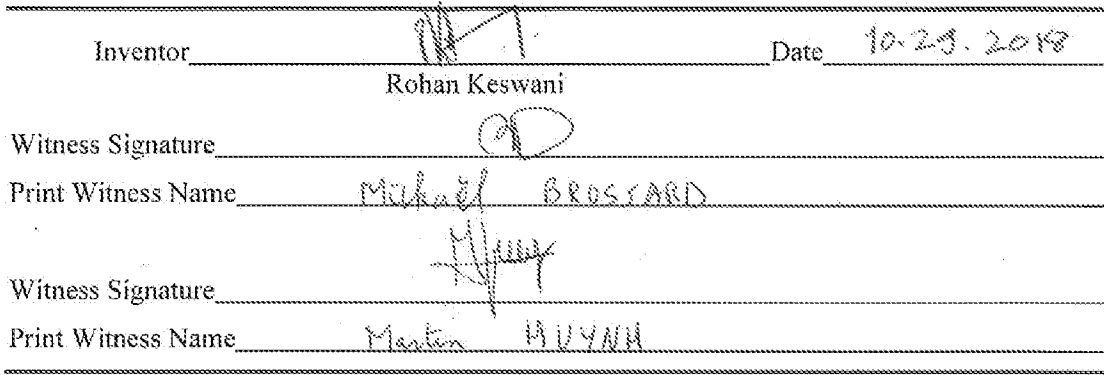 Inventor Date 10.29.2018
Rohan Keswani
Witness Signature
Print Witness Name Mickaël BROSSARD
Witness Signature
Print Witness Name Martin HUYNH